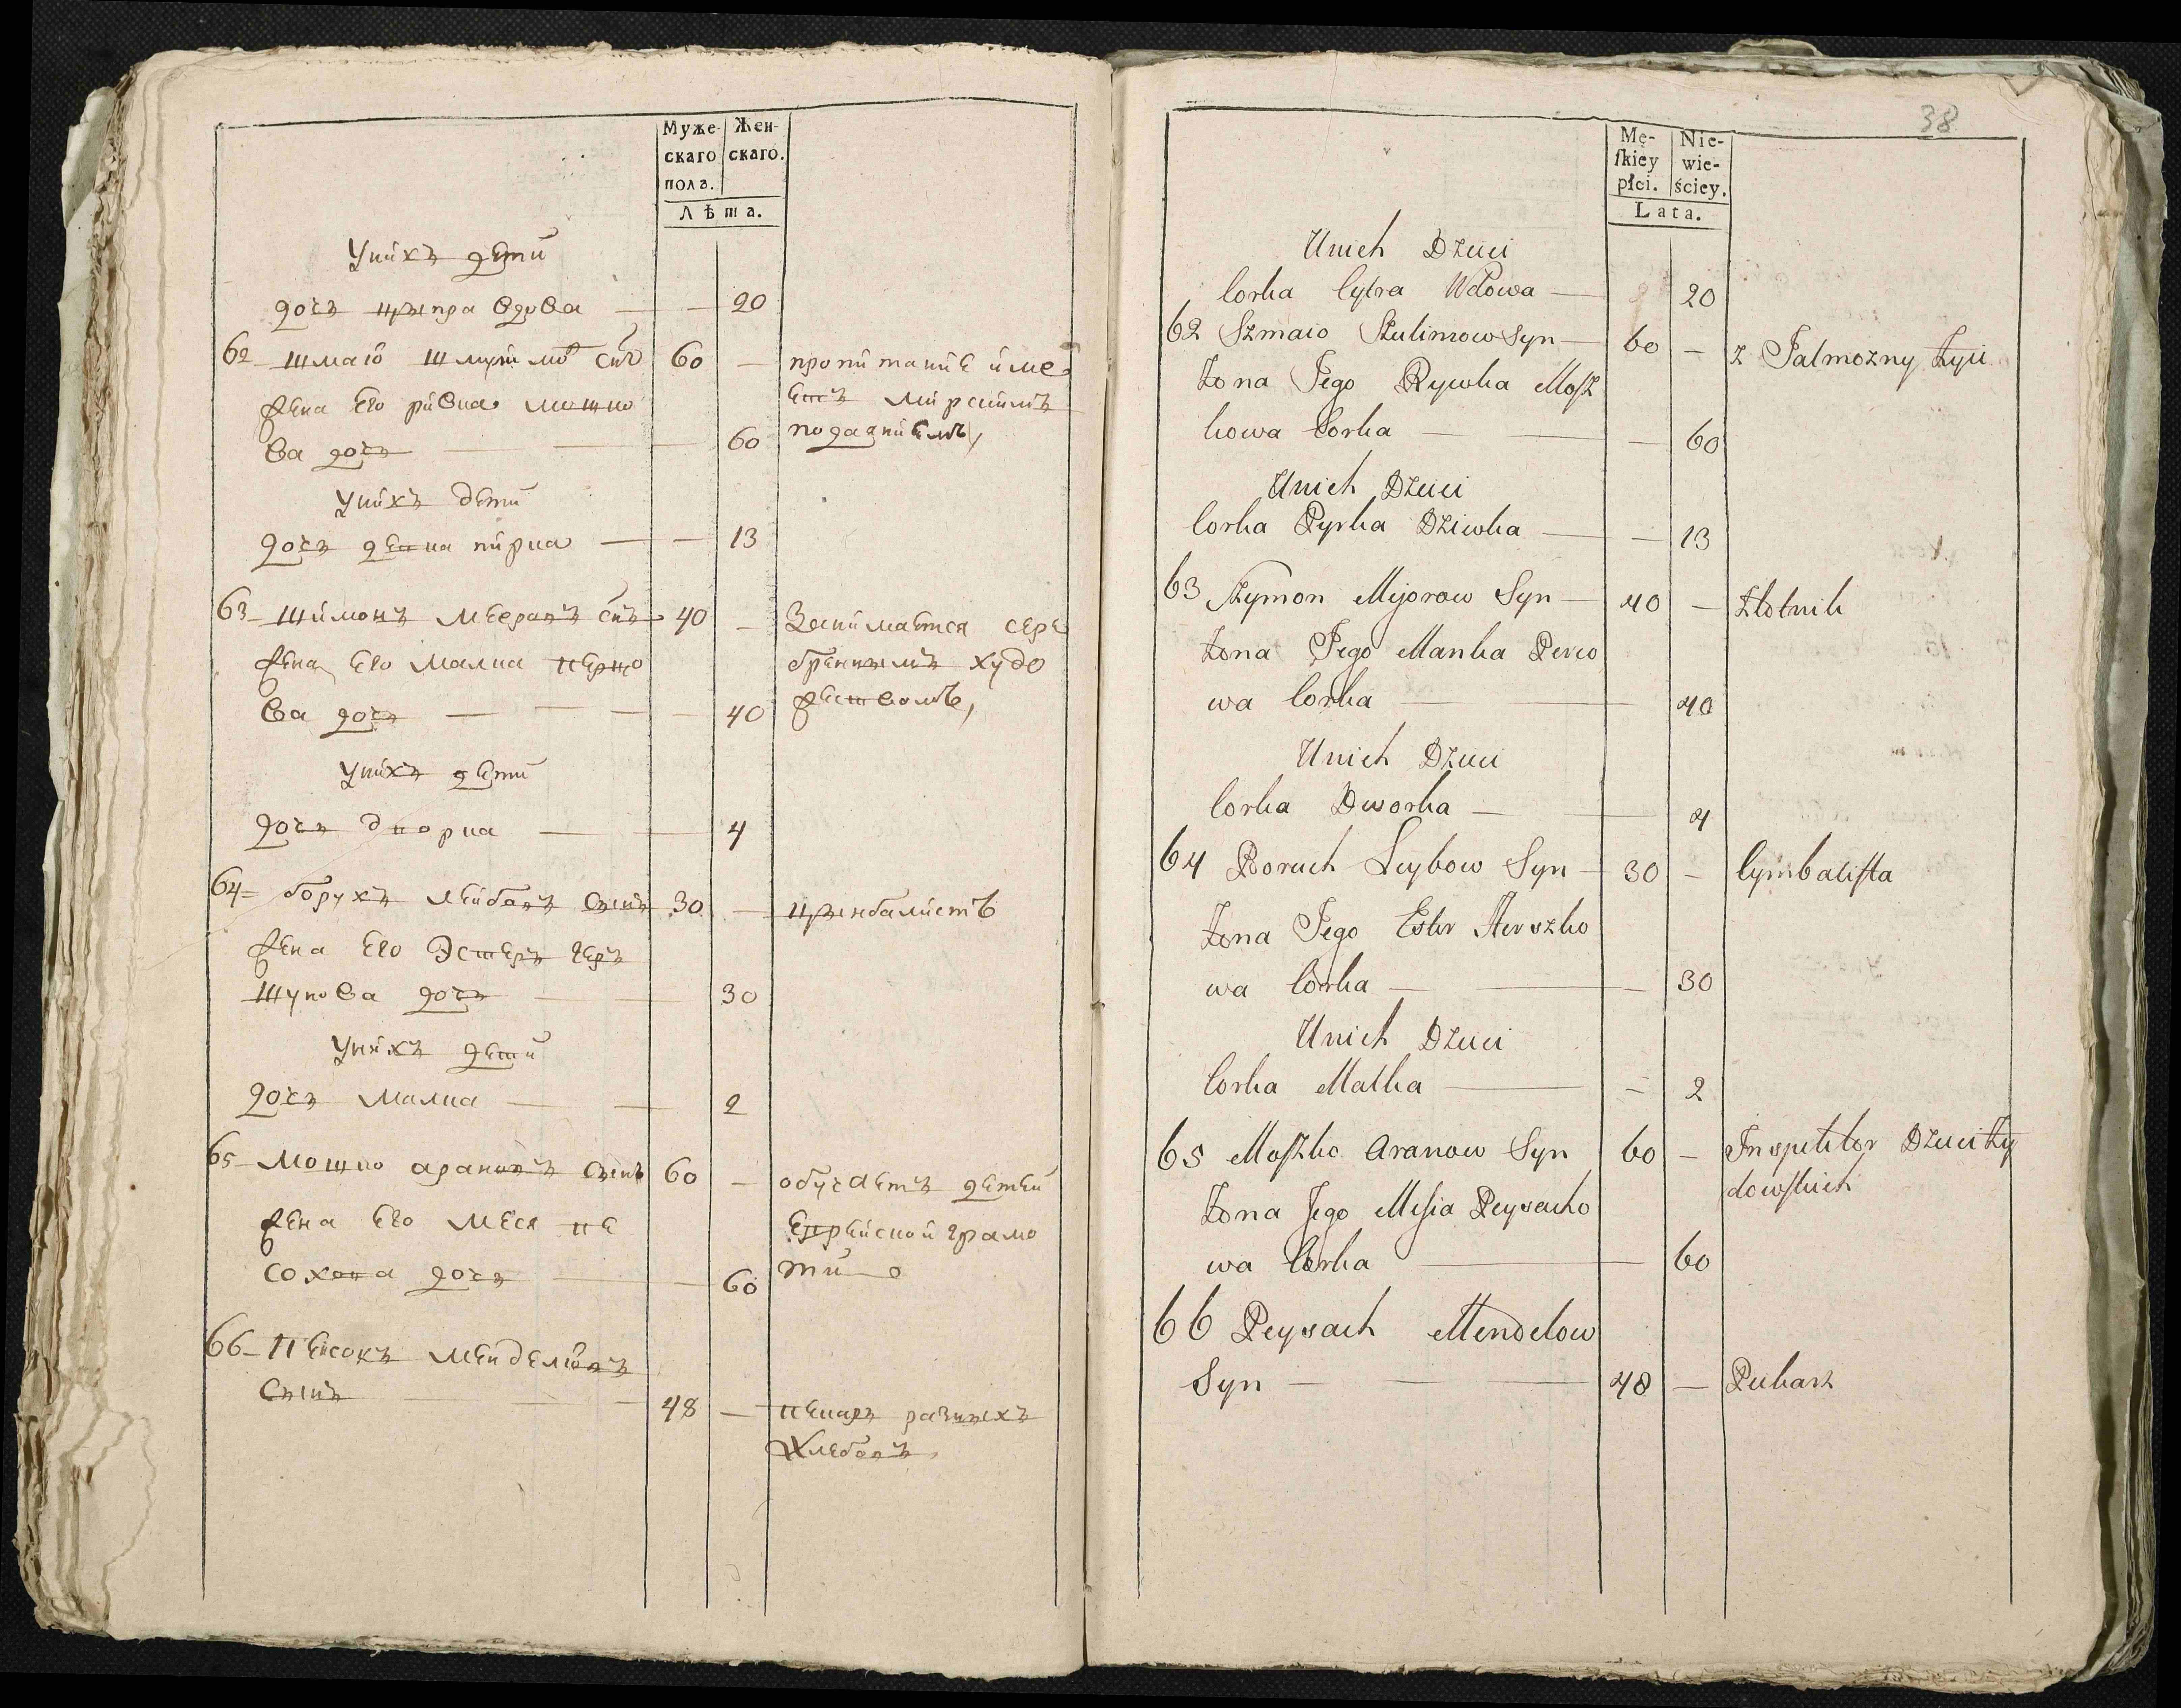 Муже-
скаго
пола.
Жен-
скаго.
Лѣта.
Унихъ дети
дочъ цыпра вдова — — 20
62 шмаю шлиомо͡въ снъ 60 — пропитание име
жена его ривка мошко етъ мирскимъ
ва дочъ — — 60 подаяниемъ,
Унихъ дети
дочъ девка пирка — — 13
63 шимонъ мееровъ снъ 40 — Занимается сере
жена его малка перцо бренымъ худо
ва дочъ — — — 40 жествомъ,
Унихъ дети
дочъ дворка — — 4
64 борухъ лейбовъ сынъ 30 — цынбалистъ
жена его Эстеръ гер
шкова дочъ — — 30
Унихъ дети
дочъ малка — — 2
65 мошко арановъ сынъ 60 — обучаетъ детей
жена его меся пе еврейской грамо
сохова дочъ — — 60 ти
66 Пейсохъ менделювъ
сынъ — — — 48 — пекарь разныхъ
хлебовъ
38
Mę-
ſkiey
płci.
Nie-
wie-
ściey.
Lata.
Unich Dzieci
Corka Cytra Wdowa — 20
62 Szmaio Szulimow Syn — 60 — z Jalmozny żyie
Żona Jego Rywka Moſz
kowa Corka — — — 60
Unich Dzieci
Corka Pyrka Dziwka — — 13
63 Szymon Mejorow Syn — 40 — Złotnik
Żona Jego Manka Perco
wa Corka — 40
Unich Dzieci
Corka Dworka — — 4
64 Boruch Leybow Syn — 30 — Cymbaliſta
Żona Jego Ester Herszko
wa Corka — — — 30
Unich Dzieci
Corka Malka — — 2
65 Moſzko Aranow Syn 60 — Inspektor Dzieci Ży
Żona Jego Meſia Peysacho dowſkich
wa Corka — 60
66 Peysach Mendelow
Syn — — — 48 — Piekarz